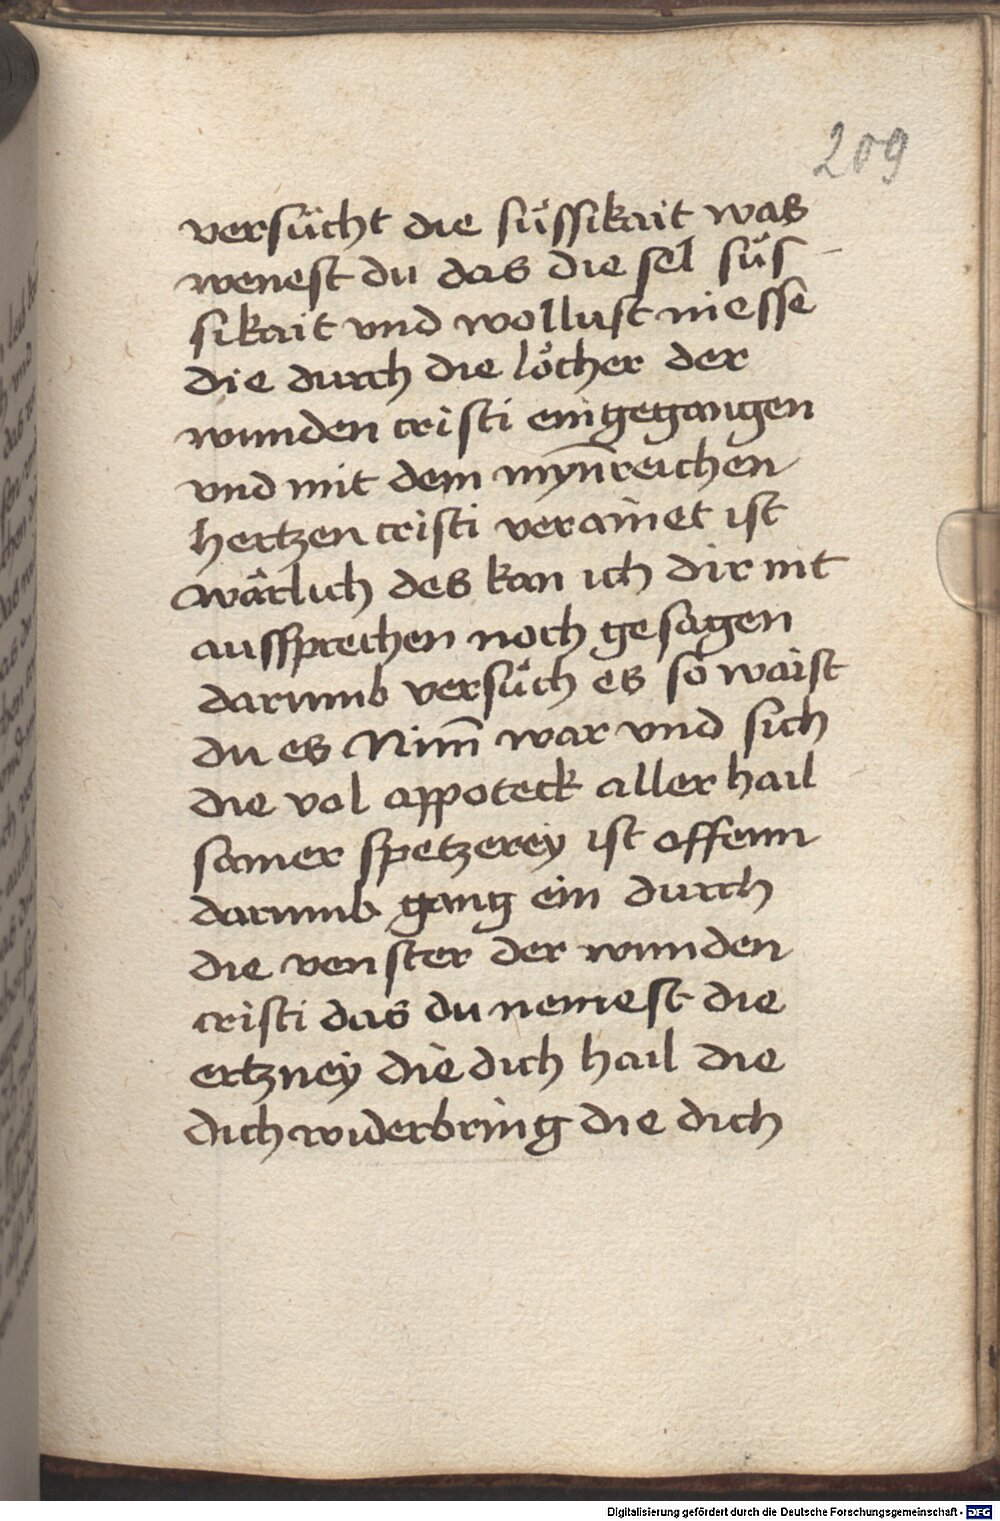 209
versücht die süssikait was
wenest du das die sel süs-
sikait vnd wollust niesse
die durch die löcher der
wunden cristi eingegangen
vnd mit dem myn̄reichen
hertzen cristi verainet ist
wärlich des kan ich dir nit
aussprechen noch gesagen
darumb versüch es so waist
du es Nim̄ war vnd sich
die vol appoteck aller hail
samer spetzerey ist offenn
darumb gang ein durch
die venster der wunden
cristi das du nemest die
ertzney die dich hail die
dich widerbring die dich
Digitalisierung gefördert durch die Deutsche Forschungsgemeinschaft - DFG